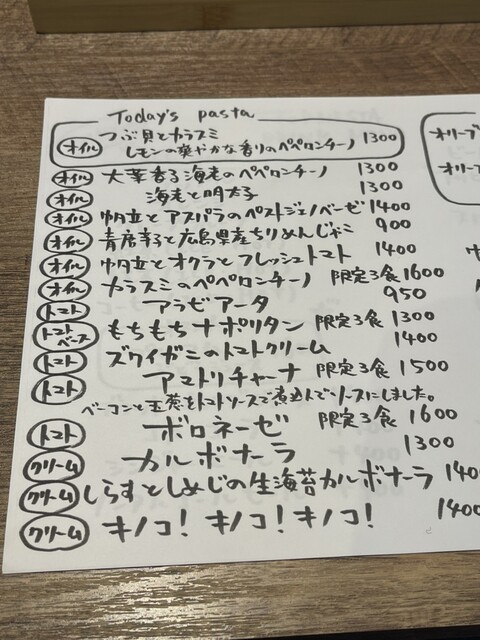 Today's pasta
オイル つぶ貝とカラスミ
レモンの爽やかな香りのペペロンチーノ 1300
オイル 大葉香る海老のペペロンチーノ 1300
オイル 海老と明太子 1300
オイル 帆立とアスパラのペストジェノベーゼ 1400
オイル 青唐辛子と広島県産ちりめんじゃこ 900
オイル 帆立とオクラとフレッシュトマト 1400
オイル カラスミのペペロンチーノ 限定3食 1600
トマト アラビアータ 950
トマトベース もちもちナポリタン 限定3食 1300
トマト ズワイガニのトマトクリーム 1400
トマト アマトリチャーナ 限定3食 1500
ベーコンと玉葱をトマトソースで煮込んでソースにしました。
トマト ボロネーゼ 限定3食 1600
クリーム カルボナーラ 1300
クリーム しらすとしめじの生海苔カルボナーラ 140
クリーム キノコ!キノコ!キノコ! 1400
オリーブ
オリーブ